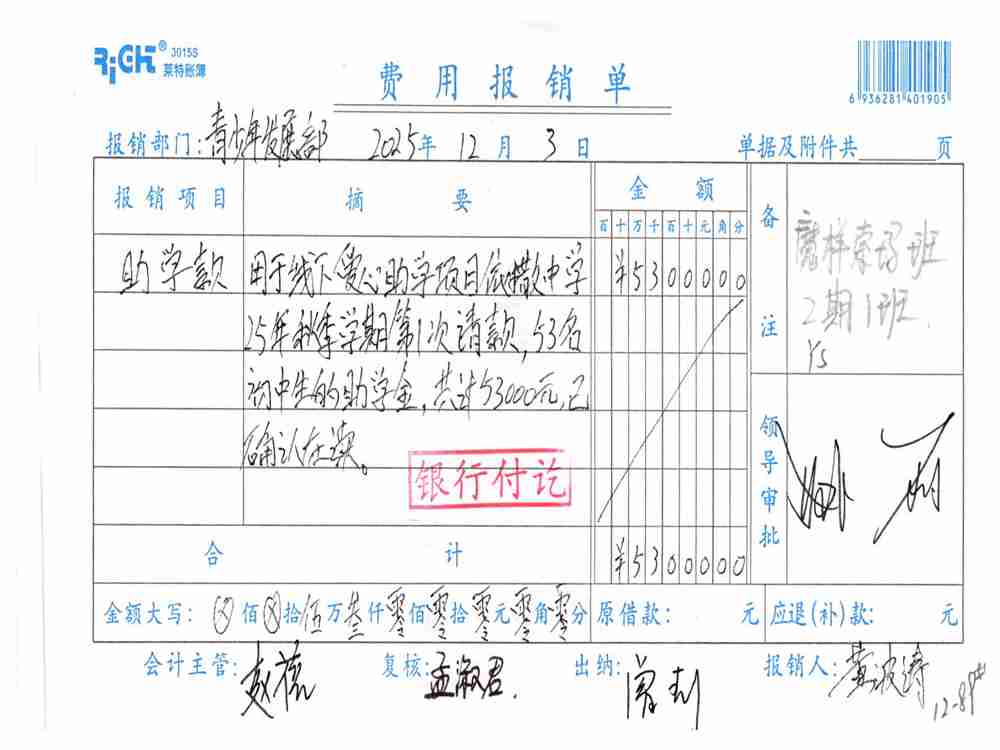 RiGHT® 3015S
莱特账簿
费用报销单
6 936281 401905
报销部门: 青少年发展部 2025年 12月 3日 单据及附件共 页
报销项目 摘要 金额 备注
百十万千百十元角分
助学款 用于线下爱心助学项目依撒中学 ¥5300000
25年秋季学期第1次请款, 53名
初中生的助学金, 共计53000元, 已
确认在读。
银行付讫
班
2期1班.
Ys
领导审批
合计 ¥5300000
金额大写: ⊗佰⊗拾伍万叁仟零佰零拾零元零角零分 原借款: 元 应退(补)款: 元
会计主管: 复核: 孟淑君. 出纳: 报销人: 黄波涛
12-89#